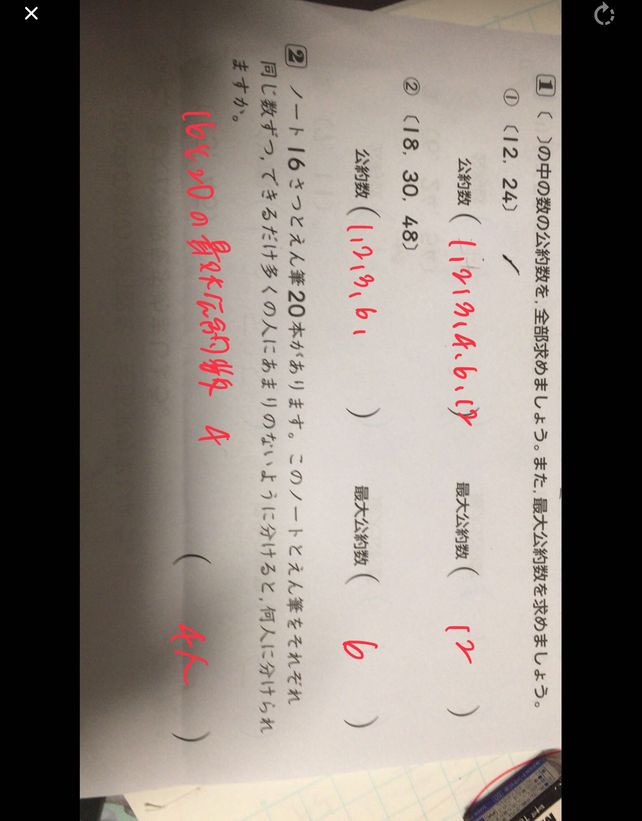 1 （ ）の中の数の公約数を，全部求めましょう。また，最大公約数を求めましょう。
① （12，24）
公約数（ 1,2,3,4,6,12 ） 最大公約数（ 12 ）
② （18，30，48）
公約数（ 1,2,3,6, ） 最大公約数（ 6 ）
2 ノート16さつとえん筆20本があります。このノートとえん筆をそれぞれ
同じ数ずつ，できるだけ多くの人にあまりのないように分けると，何人に分けられ
ますか。
16と20の最大公約数 4
（ 4人 ）